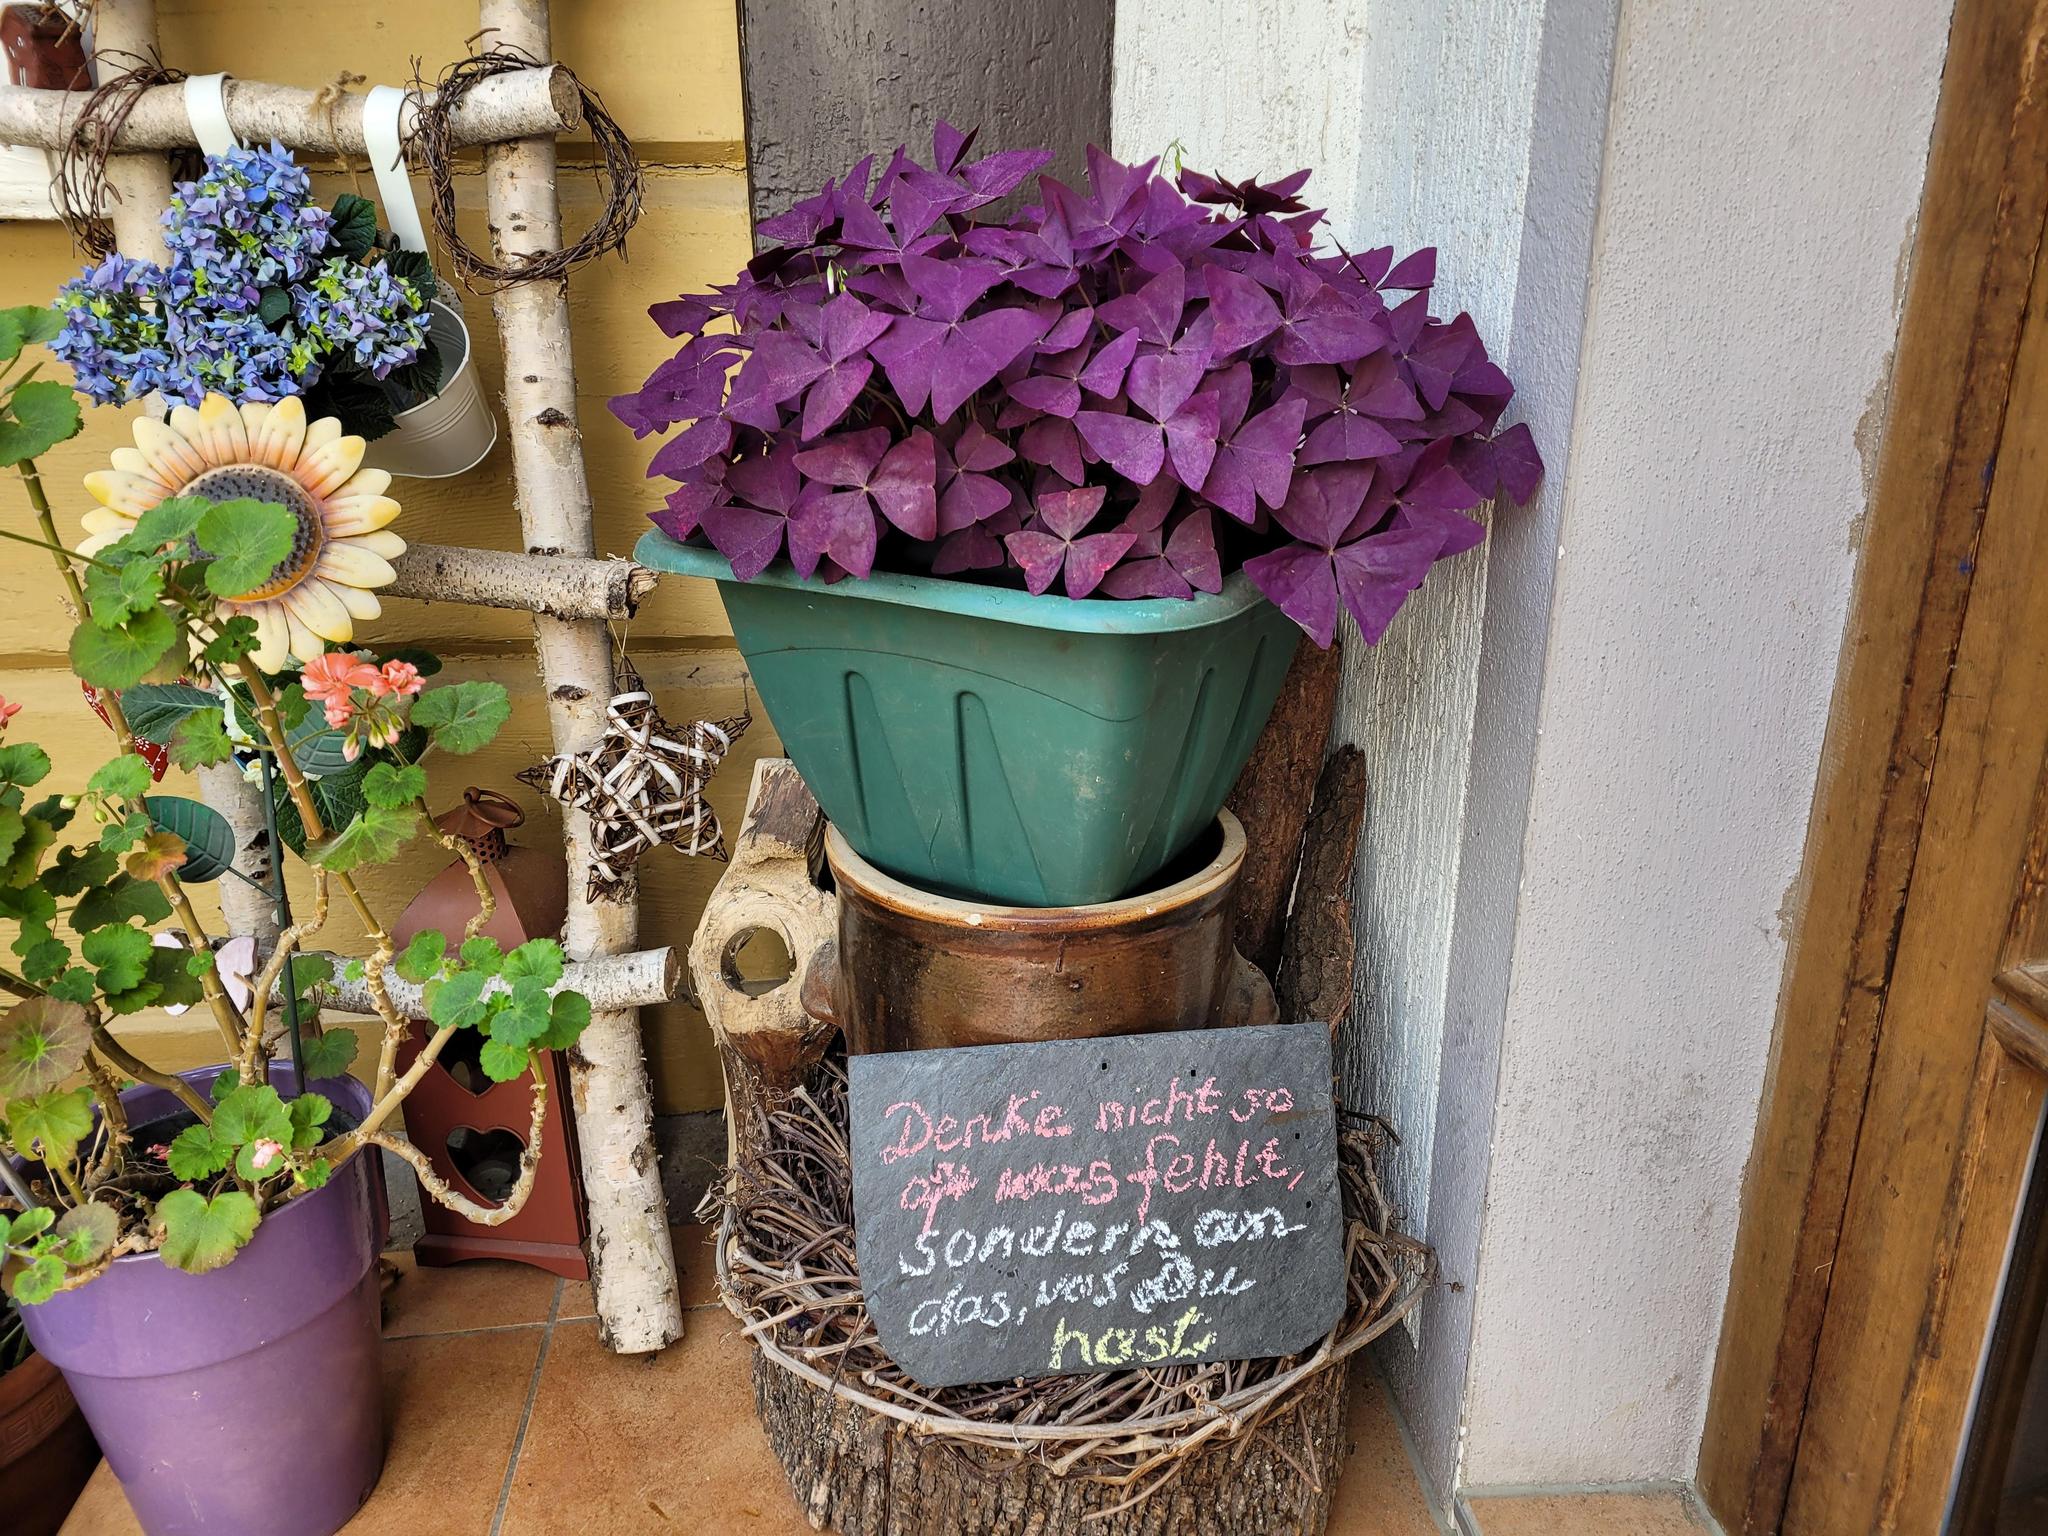 Denke nicht so
oft was fehlt,
sondern an
das, was Du
hast